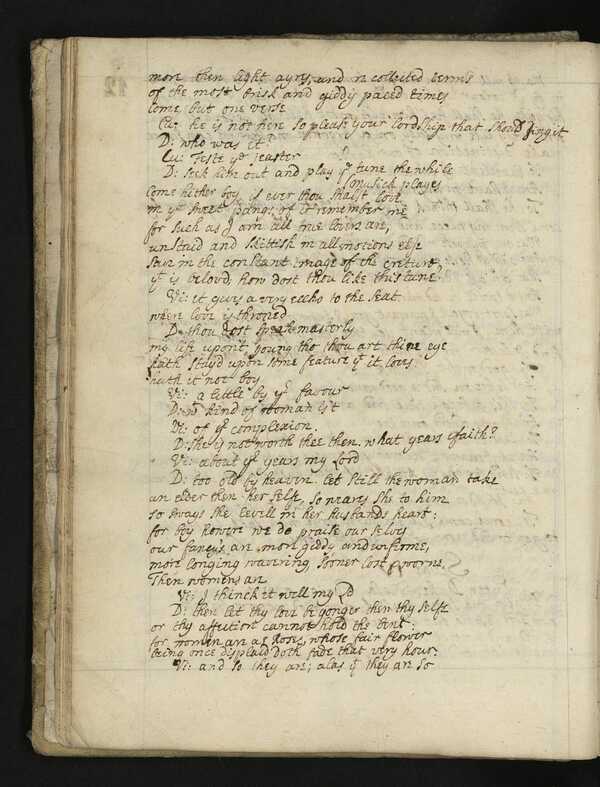 more then light ayrs, and recollected terms
of the most brisk and giddy paced times
come but one verse
Cu: he is not here so please your lordship that should sing it
D: who was it?
Cu: Feste ye jeaster
D: seek him out and play ye tune the while
musick playes
come hither boy, if ever thou shalt love
in ye sweet pangs of it remember me
for such as I am all true lovers are,
unstaid and skittish in all motions else
save in the constant image of the creture,
yt is belovd, how dost thou like this tune?
Vi: it gives a very eccho to the seat
where love is throned
D: thou dost speak masterly
my life upon't young tho thou art thine eye
hath stayd upon some feature yt it loves
hath it not boy
Vi: a little by yr favour
D: wt kind of woman is't
Vi: of yr complexion.
D: she is not worth thee then. what years ifaith?
Vi: about yr years my Lord
D: too old by heaven. let still the woman take
an elder then her selfe, so wears she to him
so sways she levell in her husbands heart:
for boy however we do praise our selvs
our fancys are more giddy and unfirme,
more longing wavering, sooner lost & worne,
Then womens are
Vi: I thinck it well my Ld
D: then let thy love be yonger then thy selfe
or thy affection cannot hold the bent:
for women are as Roses, whose fair flower
being once displaid doth fade that very hour.
Vi: and so they are; alas yt they are so